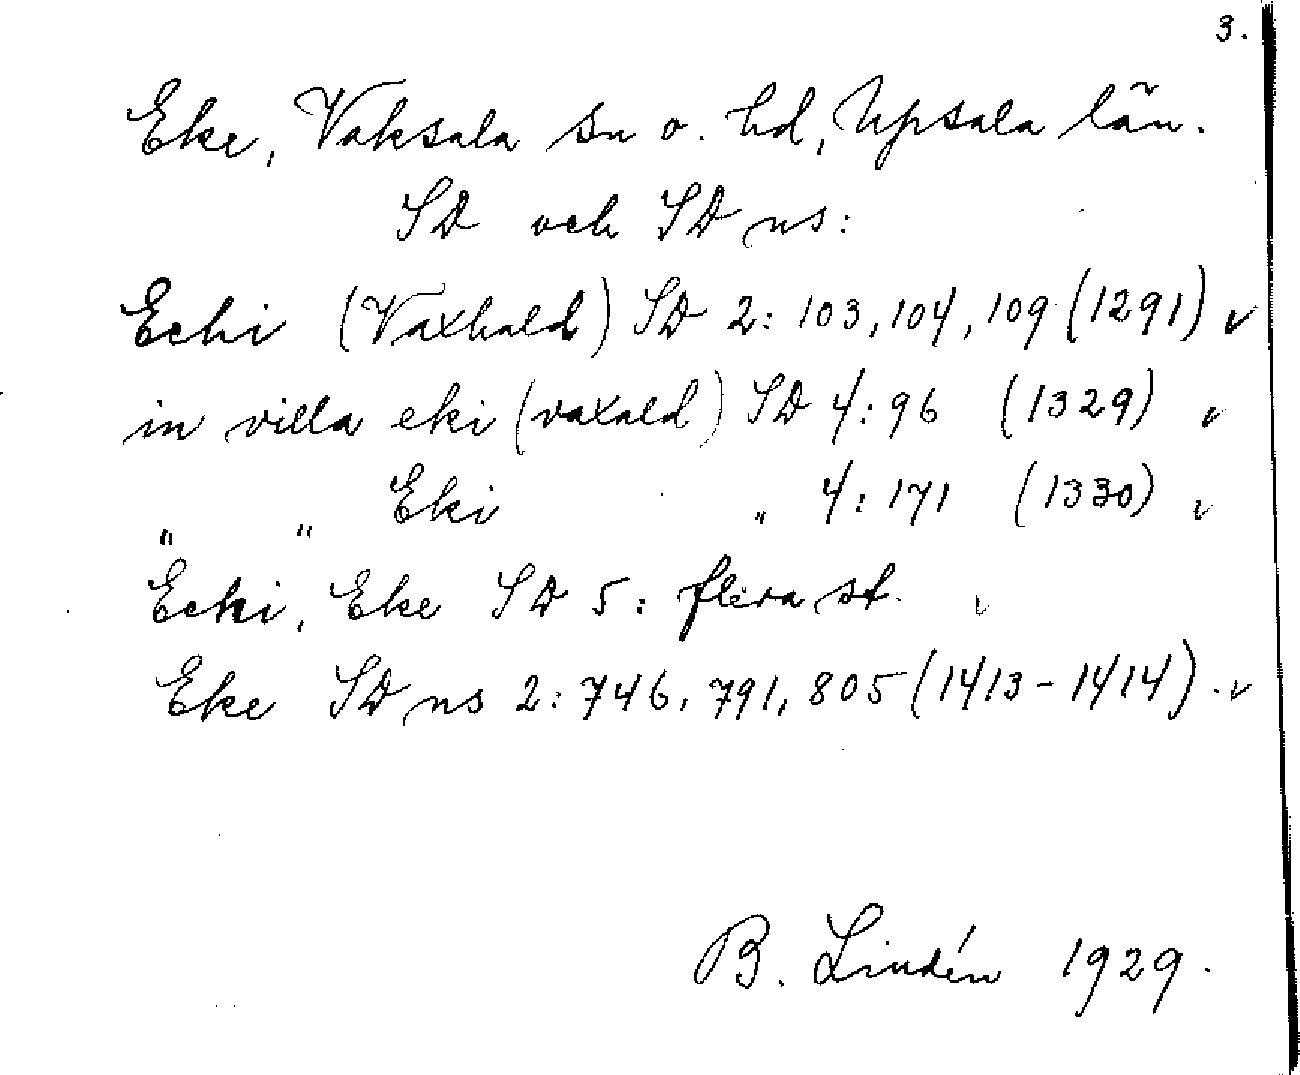 3.
Eke, Vaksala sn o. hd, Upsala län.
SD och SD ns:
Echi (Vaxhald) SD 2: 103, 104, 109 (1291) v
in villa eki (vaxald) SD 4: 96 (1329) v
" " Eki " 4: 171 (1330) v
Ecki, Eke SD 5: flera st. v
Eke SD ns 2: 746, 791, 805 (1413-1414). v
B. Lindén 1929.